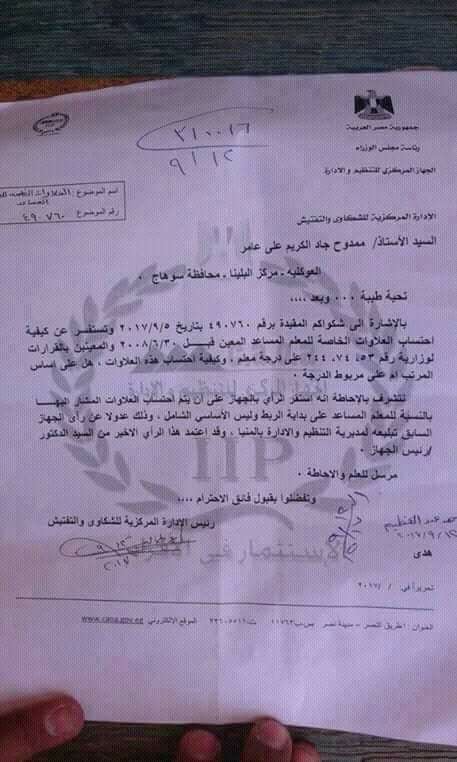 جمهورية مصر العربية
رئاسة مجلس الوزراء
الجهاز المركزى للتنظيم والادارة
٣١٠٠١٦
٩/١٢
اسم الموضوع :
رقم الموضوع : ٤٩٠٧٦٠
الإدارة المركزية للشكاوى والتفتيش
السيد الأستاذ/ ممدوح جاد الكريم على عامر
العوكليه - مركز البلينا - محافظة سوهاج ٠
تحية طيبة ٠٠٠ وبعد ،،،،
بالإشارة الى شكواكم المقيدة برقم ٤٩٠٧٦٠ بتاريخ ٢٠١٧/٩/٥ وتستفسر عن كيفية
احتساب العلاوات الخاصة للمعلم المساعد المعين قبل ٢٠٠٨/٦/٣٠ والمعينين بالقرارات
لوزارية رقم ٥٣، ٧٤، ٢٤٤ على درجة معلم ، وكيفية احتساب هذه العلاوات ، هل على اساس
المرتب ام على مربوط الدرجة ٠
نتشرف بالإحاطة انه استقر الرأي بالجهاز على أن يتم احتساب العلاوات المشار اليها
بالنسبة للمعلم المساعد على بداية الربط وليس الأساسي الشامل ، وذلك عدولا عن رأى الجهاز
السابق تبليغه لمديرية التنظيم والادارة بالمنيا ، وقد اعتمد هذا الرأي الاخير من السيد الدكتور
/رئيس الجهاز ٠
IIP
مرسل للعلم والاحاطة ٠
وتفضلوا بقبول فائق الاحترام ،،،،
رئيس الإدارة المركزية للشكاوى والتفتيش
عبد العظيم
هدى
الإستثمار فى
تحريراً في / / ٢٠١٧
العنوان : طريق النصر - مدينة نصر ص.ب ١١٧٦٣ الموقع الإلكتروني